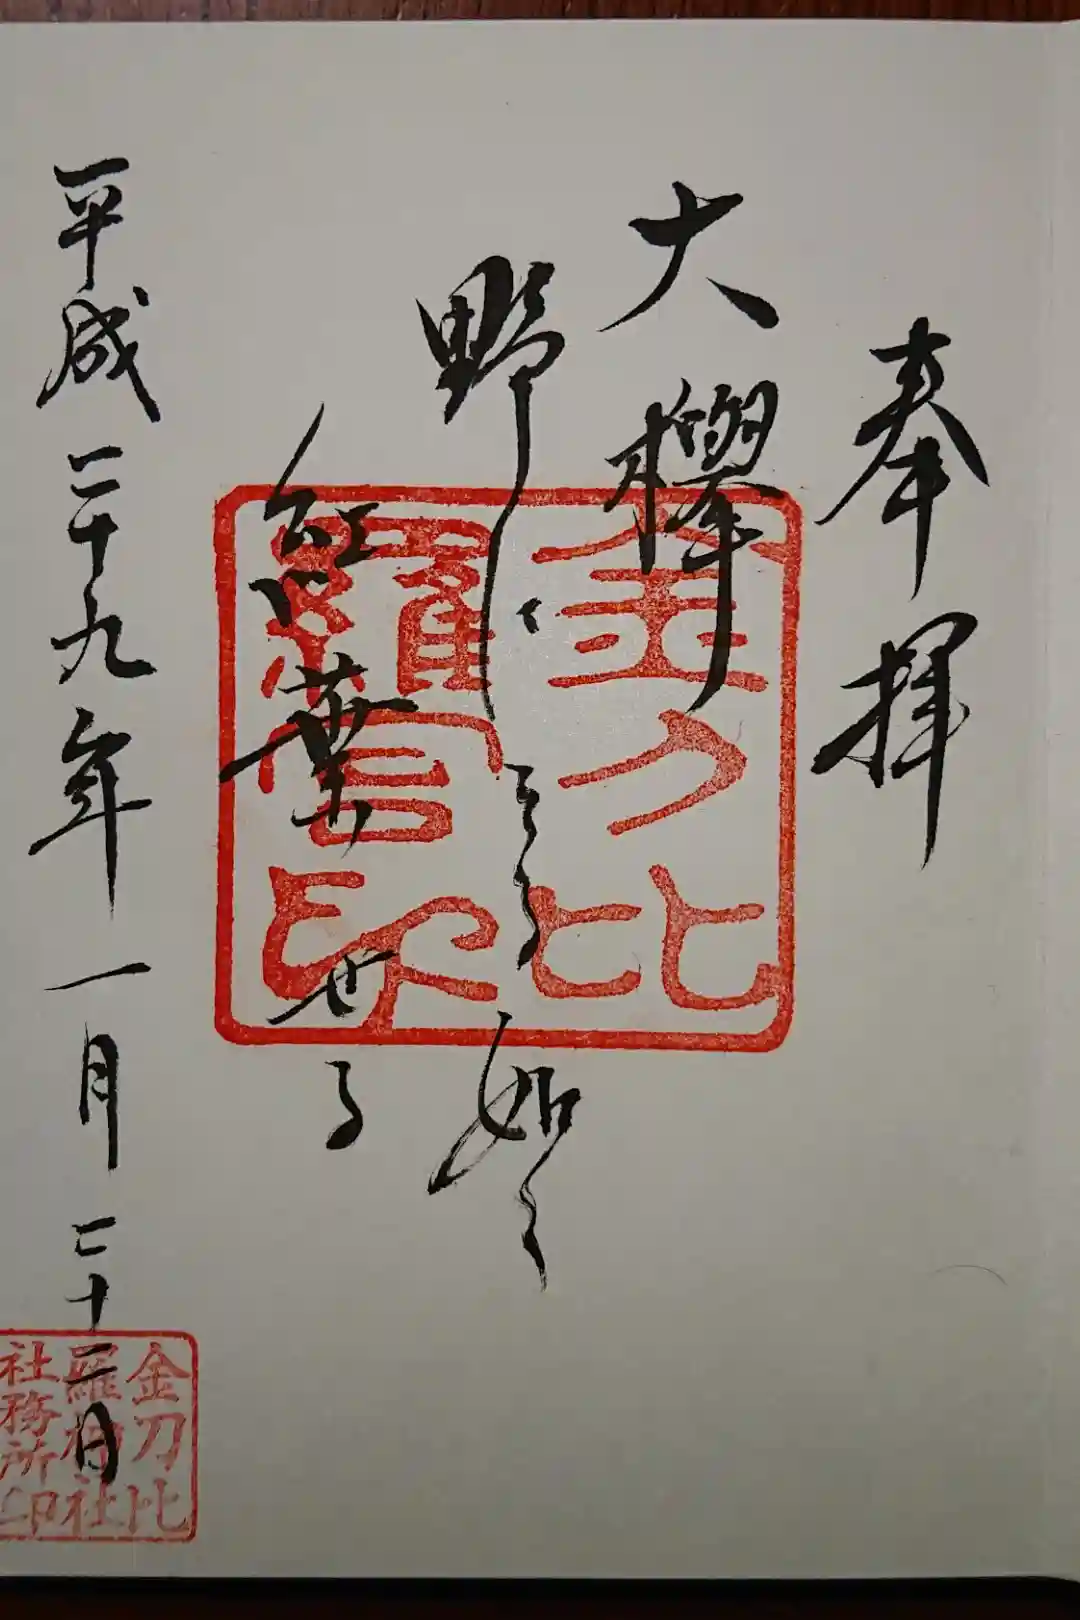 奉拝
大欅
野 如く
紅葉せる
平成二十九年一月二十二日
金刀比
羅宮印
金刀比
羅神社
社務所印